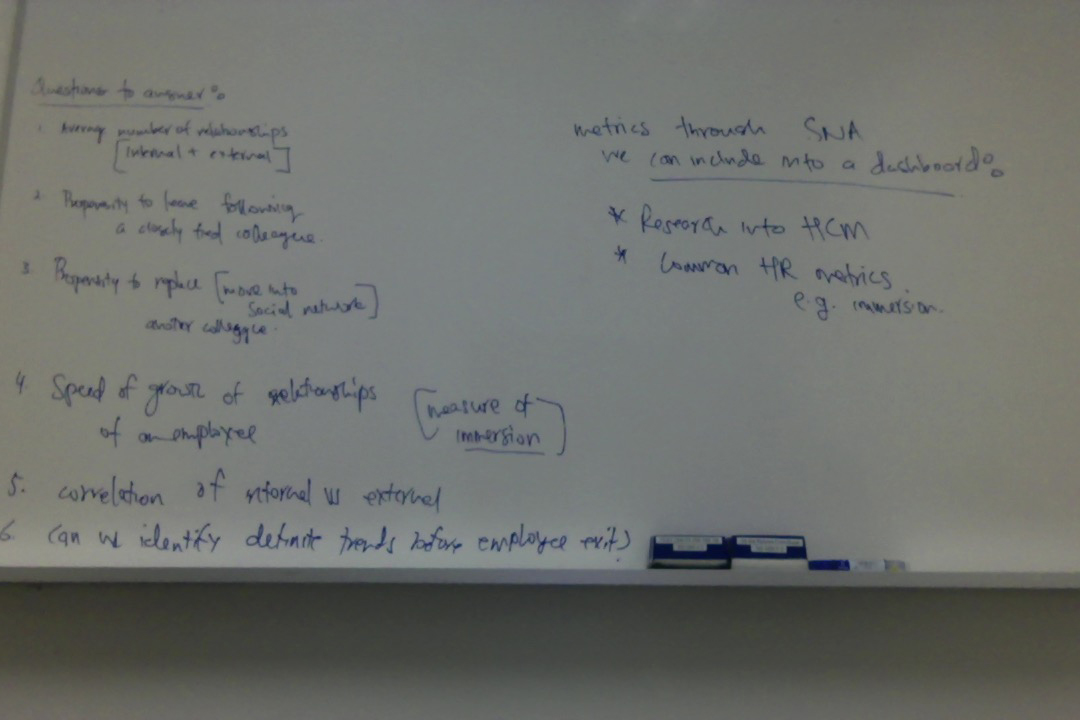 Questions to answer:
1. Average number of relationships
[internal + external]
2. Propensity to leave following
a closely tied colleague.
3. Propensity to replace [move into
social network]
another colleague.
4. Speed of growth of relationships
of an employee
[measure of
immersion]
5. correlation of internal vs external
6. Can we identify definite trends before employee exit?
metrics through SNA
we can include into a dashboard:
* Research into HCM
* Common HR metrics
e.g. immersion.